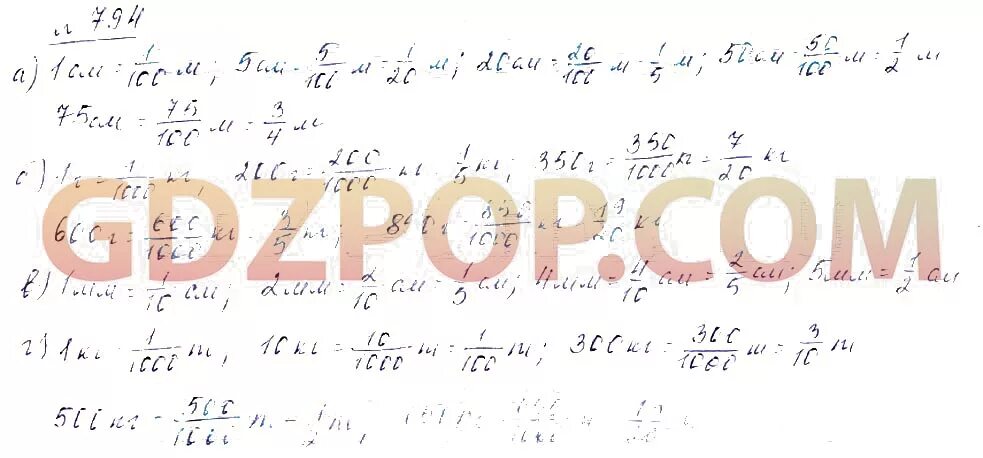 № 794
а) 1 см = 1/100 м; 5 см = 5/100 м = 1/20 м; 20 см = 20/100 м = 1/5 м; 50 см = 50/100 м = 1/2 м
75 см = 75/100 м = 3/4 м
б) 1 г = 1/1000 кг, 200 г = 200/1000 кг = 1/5 кг; 350 г = 350/1000 кг = 7/20 кг
GDZPOP.COM
600 г = 600/1000 кг = 3/5 кг;
в) 1 мм = 1/10 см; 2 мм = 2/10 см = 1/5 см; 4 мм = 4/10 см = 2/5 см; 5 мм = 1/2 см
г) 1 кг = 1/1000 т, 10 кг = 10/1000 т = 1/100 т; 300 кг = 300/1000 т = 3/10 т
500 кг = 500/1000 т = 1/2 т;